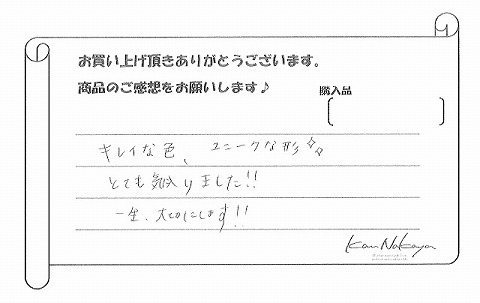 お買い上げ頂きありがとうございます。
商品のご感想をお願いします♪
購入品
キレイな色、ユニークな形✧✧
とても気入りました!!
一生、大切にします!!
Kan Nakaya